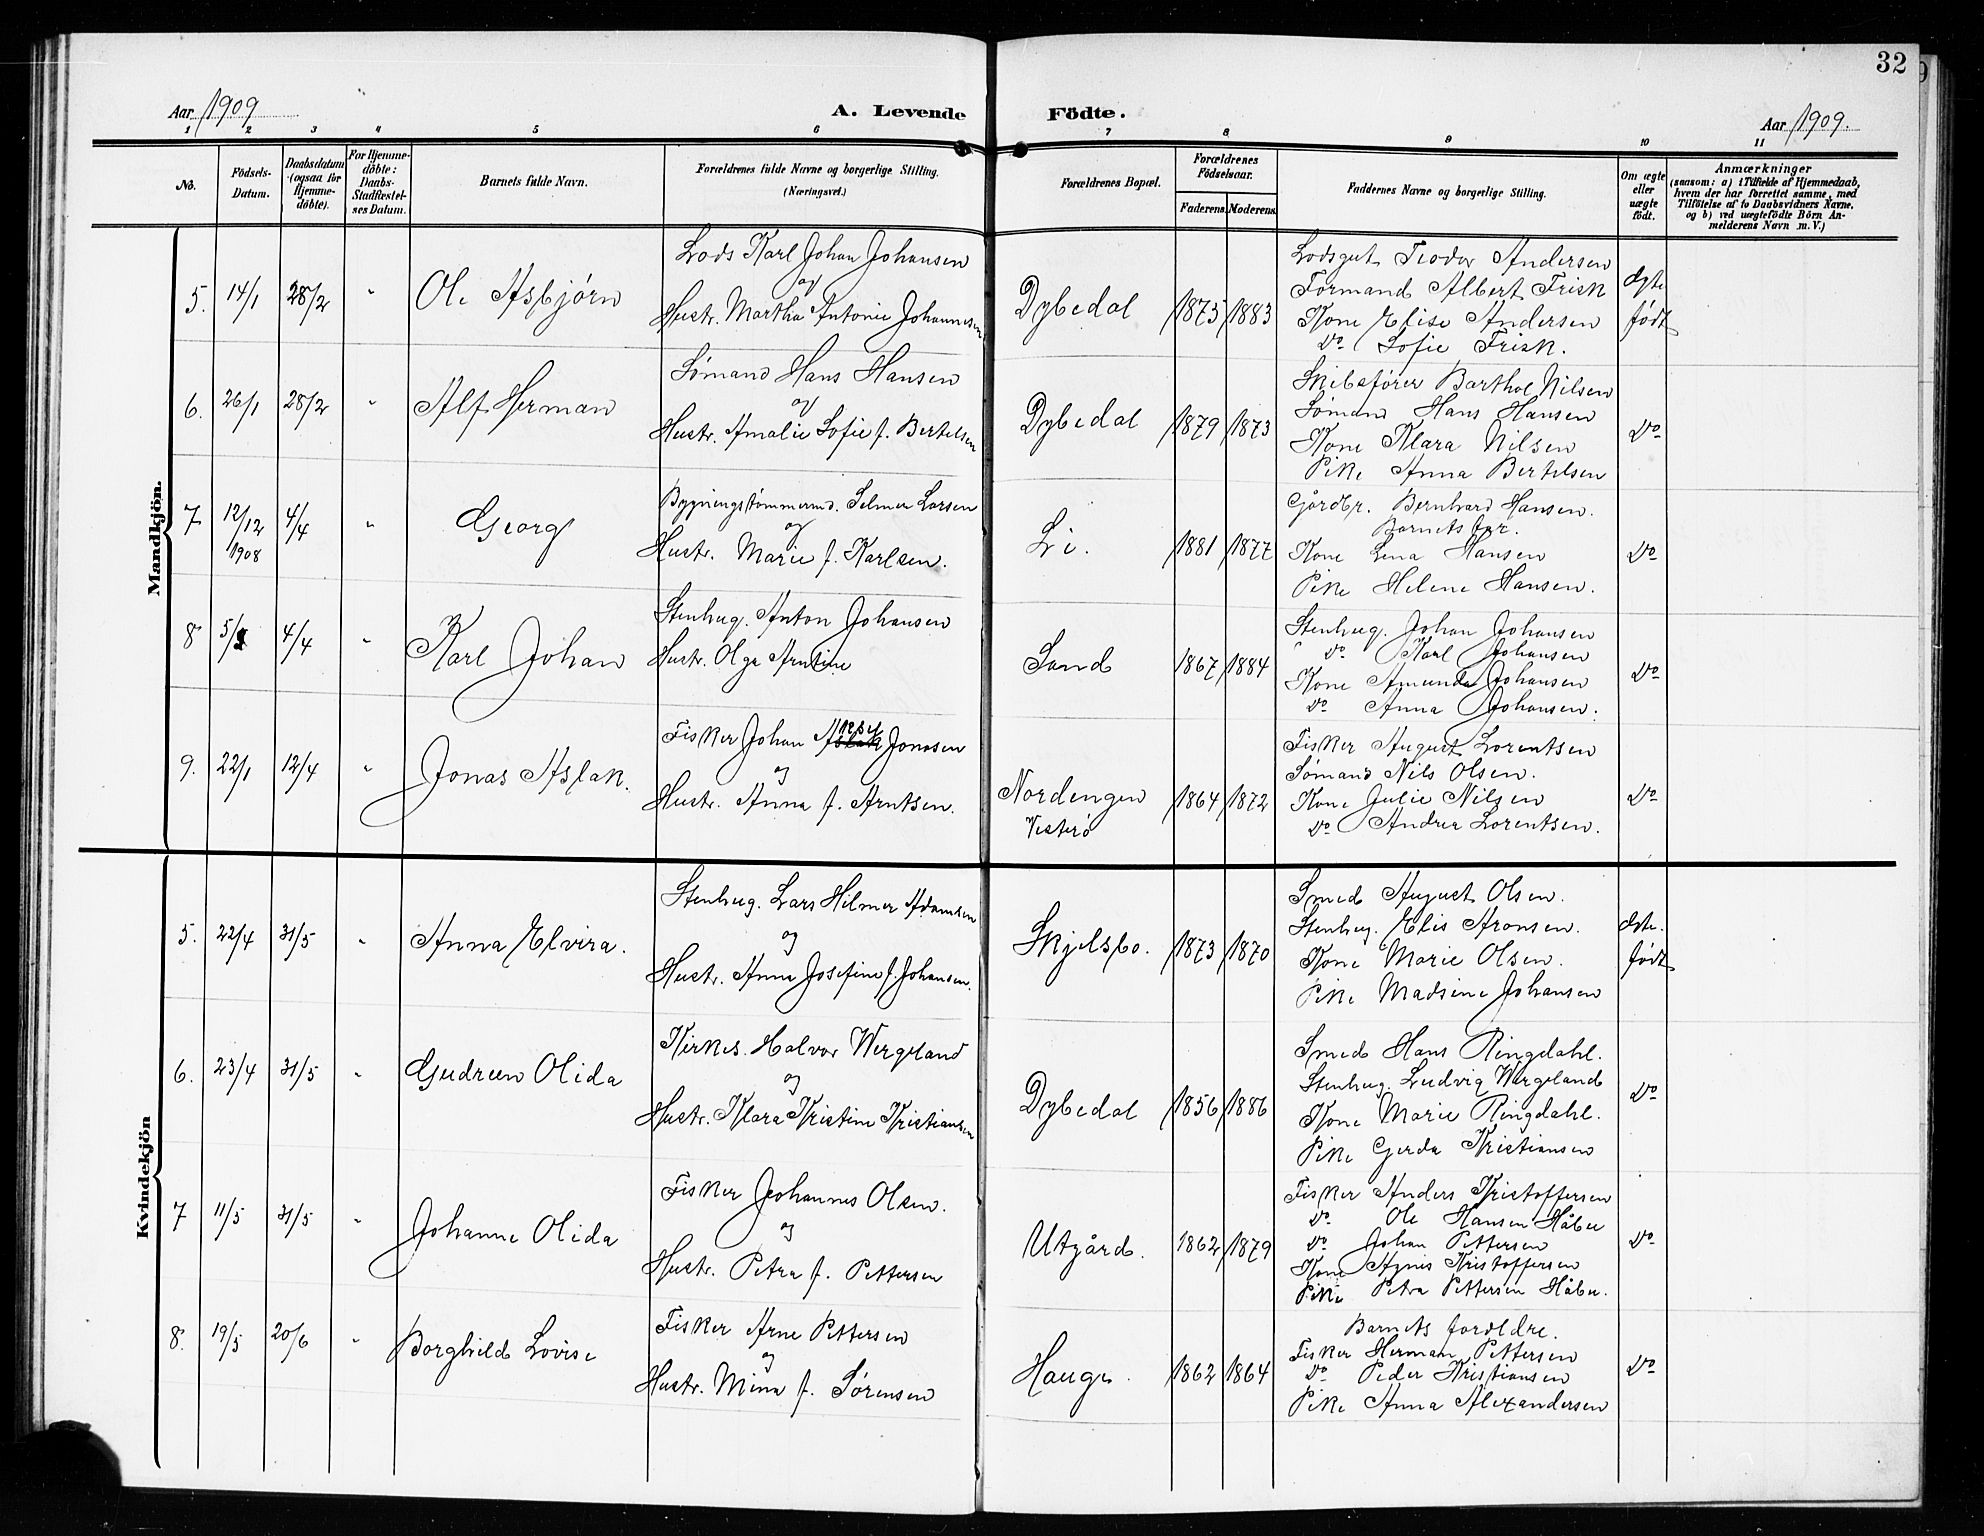 32
Aar 1909
A. Levende Födte.
Aar 1909.
1 2 3 4 5 6 7 8 9 10 11
No.
Födsels-
Datum.
Daabsdatum
(ogsaa for
Hjemme-
döbte).
For Hjemme-
döbte:
Daabs-
Stadfæstel-
ses Datum.
Barnets fulde Navn.
Forældrenes fulde Navne og borgerlige Stilling.
(Næringsvei.)
Forældrenes Bopæl.
Forældrenes
Födselsaar.
Faderens. Moderens.
Faddernes Navne og borgerlige Stilling.
Om ægte
eller
uægte
födt.
Anmærkninger
(saasom: a) i Tilfælde af Hjemmedaab,
hvem der har forrettet samme, med
Tilföielse af to Daabsvidners Navne,
og b) ved uægtefödte Börn An-
melderens Navn m. V.)
Mandkjön.
5. 14/1 28/2 " Ole Asbjørn
Lods Karl Johan Johansen
og
Hustr. Martha Antonie Johannesen
Dybedal 1875 1883
Lodsgut Teodor Andersen
Formand Albert Frisk
Kone Elise Andersen
Do Sofie Frisk.
Ægte
født
6. 26/1 28/2 " Alf Herman
Sømand Hans Hansen
og
Hustr. Amalie Sofie f. Bertelsen
Dybedal 1879 1873
Skibsfører Barthol Nilsen
Sømand Hans Hansen
Kone Klara Nilsen
Pike Anna Bertelsen
Do
7 12/12 1908 4/4 " Georg
Bygningstømmermd. Selmer Larsen
og
Hustr. Marie f. Karlsen.
Li. 1881 1877
Gårdbr. Bernhard Hansen.
Barnets far.
Kone Lina Hansen
Pike Helene Hansen.
Do
8 5/2 4/4 " Karl Johan
Stenhug. Anton Johansen
Hustr. Olga Arntine
Sand 1867 1884
Stenhug. Johan Johansen
Do Karl Johansen
Kone Amunda Johansen
Do Anna Johansen.
Do
9. 22/1 12/4 " Jonas Aslak.
Fisker Johan Jonasen
og
Hustr. Anna f. Arntsen.
Nordengen
Vesterø
1864 1872
Fisker August Lorentsen
Sømand Nils Olsen.
Kone Julie Nilsen
Do Andrea Lorentsen.
Do
Kvindekjön
5. 22/4 31/5 " Anna Elvira.
Stenhug. Lars Hilmer Adamsen
og
Hustr. Anna Josefine f. Johansen.
Skjelsbo. 1873 1870
Smed August Olsen.
Stenhug. Elis Aronsen.
Kone Marie Olsen.
Pike Madsine Johansen
Ægte.
født
6. 23/4 31/5 " Gudrun Olida
Kirkes. Halvor Wergeland
og
Hustr. Klara Kristine Kristiansen
Dybedal 1856 1886
Smed Hans Ringdahl.
Stenhug. Ludvig Wergeland
Kone Marie Ringdahl.
Pike Gerda Kristiansen
Do
7 11/5 31/5 " Johanne Olida
Fisker Johannes Olsen.
og
Hustr. Petra f. Pettersen
Utgård. 1862 1879
Fisker Anders Kristoffersen
Do Ole Hansen Håbu
Do Johan Pettersen
Kone Agnes Kristoffersen
Pike Petra Pettersen Håbu.
Do
8. 19/5 20/6 " Borghild Lovise
Fisker Arne Pettersen
og
Hustr. Mina f. Sørensen
Hauge. 1862 1864
Barnets forældre.
Fisker Herman Pettersen
Do Peder Kristiansen
Pike Anna Alexandersen
Do